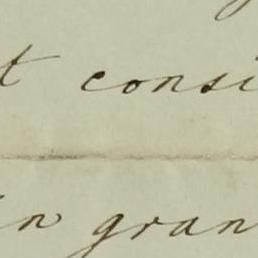 t consi
in gran